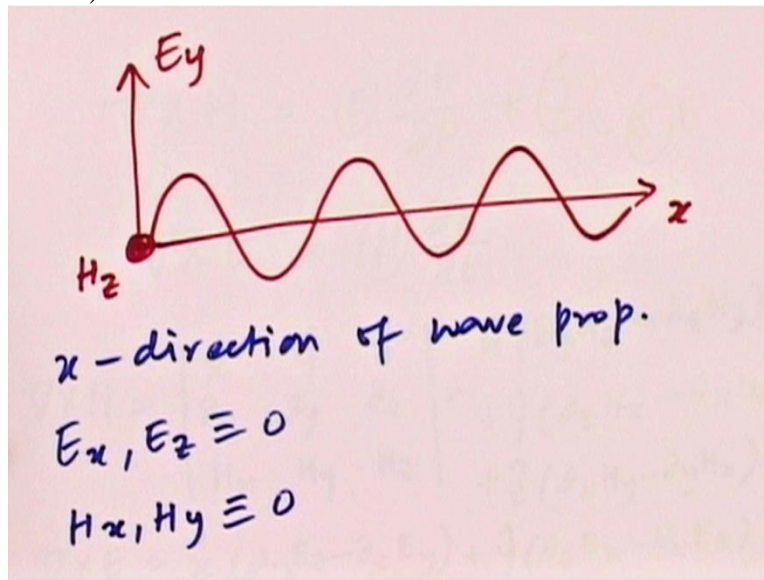 Ey
x
Hz
x - direction of wave prop.
Ex, Ez ≡ 0
Hx, Hy ≡ 0